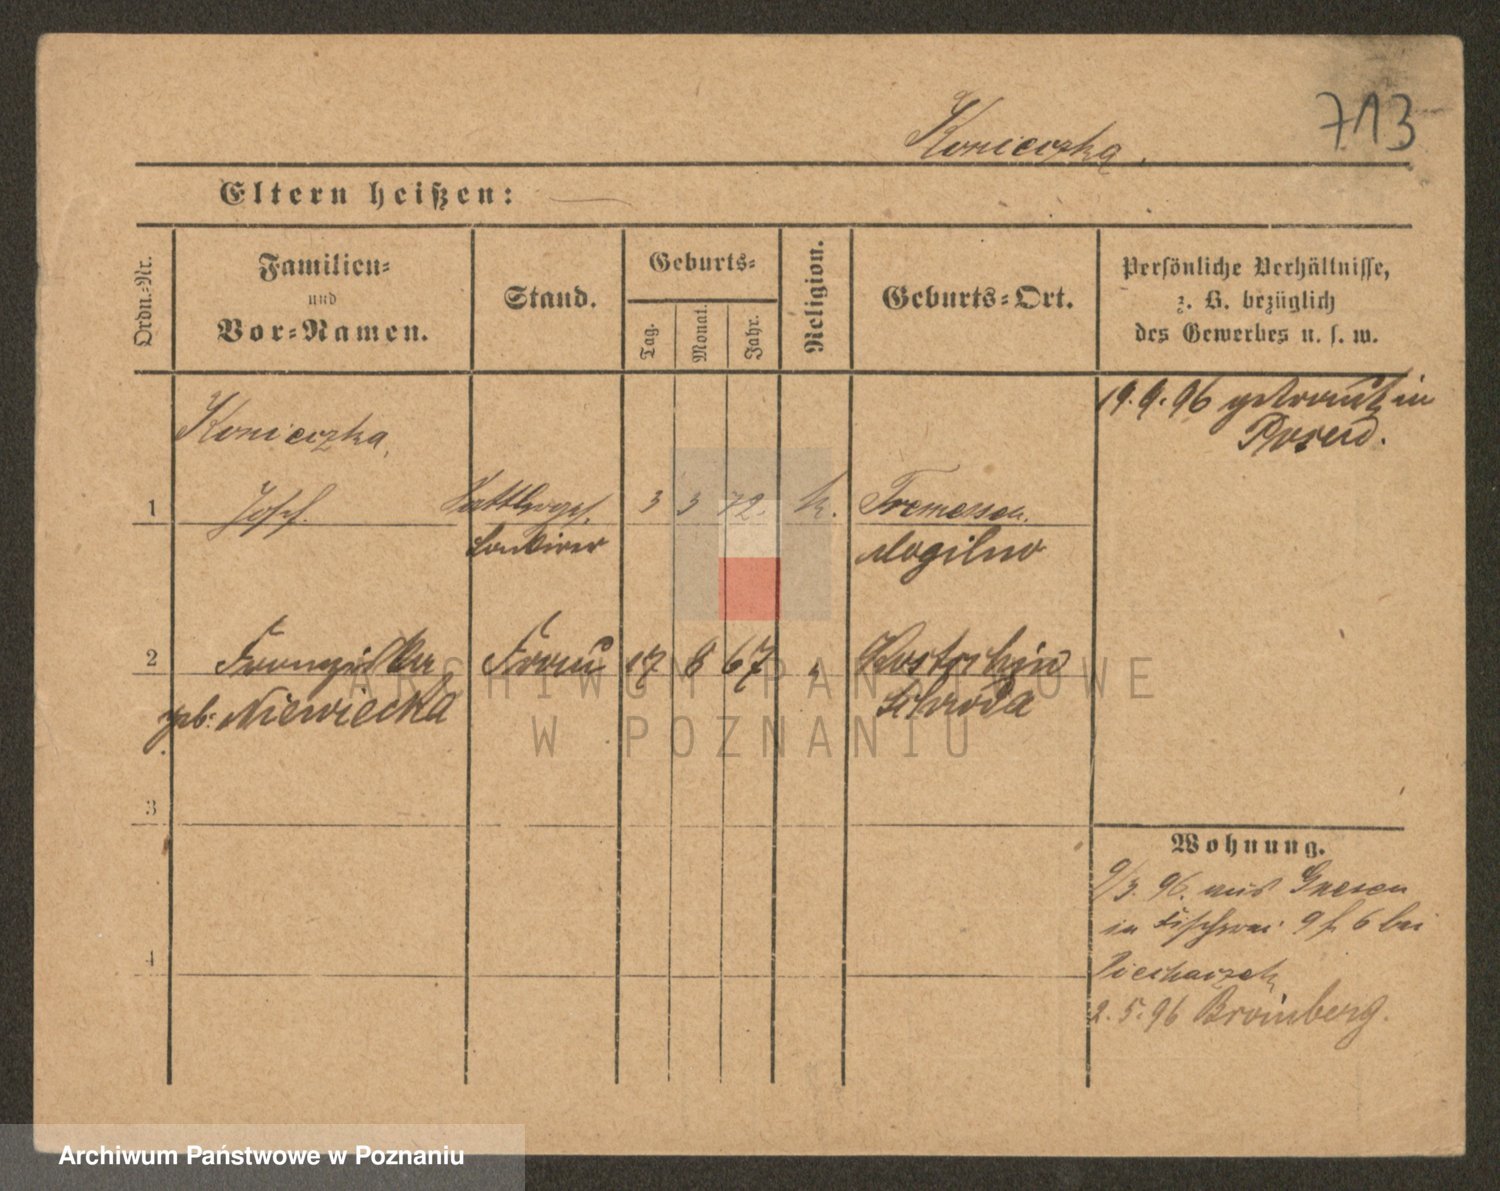 713
Konieczka.
Eltern heißen:
Ordn.-Nr.
Familien-
und
Vor-Namen.
Stand.
Geburts-
Tag.
Monat.
Jahr.
Religion.
Geburts-Ort.
Persönliche Verhältnisse,
z. B. bezüglich
des Gewerbes u. s. w.
19.9.96 getraut in
Posen.
Konieczka,
1 Josef. Sattlerges. 3 3 72. k. Tremessen.
Mogilno
2 Franziska Frau 17 8 67 " Kostschin
geb: Niewiecka Schroda
3
4
Wohnung.
9/3. 96. aus Gnesen
in Fischerei 9 f 6 bei
Piecharzek
2.5.96 Bromberg.
ARCHIWUM PAŃSTWOWE
W POZNANIU
Archiwum Państwowe w Poznaniu